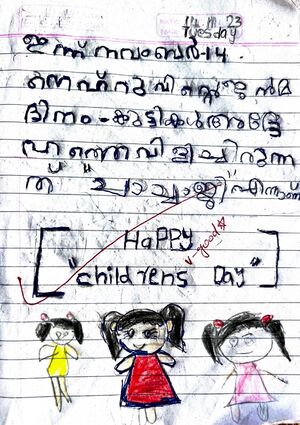 14.11.23
Tuesday
ഇന്ന് നവംബർ-14.
നെഹ്റുവിന്റെ ജൻമ
ദിനം - കുട്ടികൾ അദ്ദേ
ഹത്തെ വിളിച്ചിരുന്ന
ത് "ചാച്ചാജി" എന്നാണ്
HaPPy
good
"childrens Day"